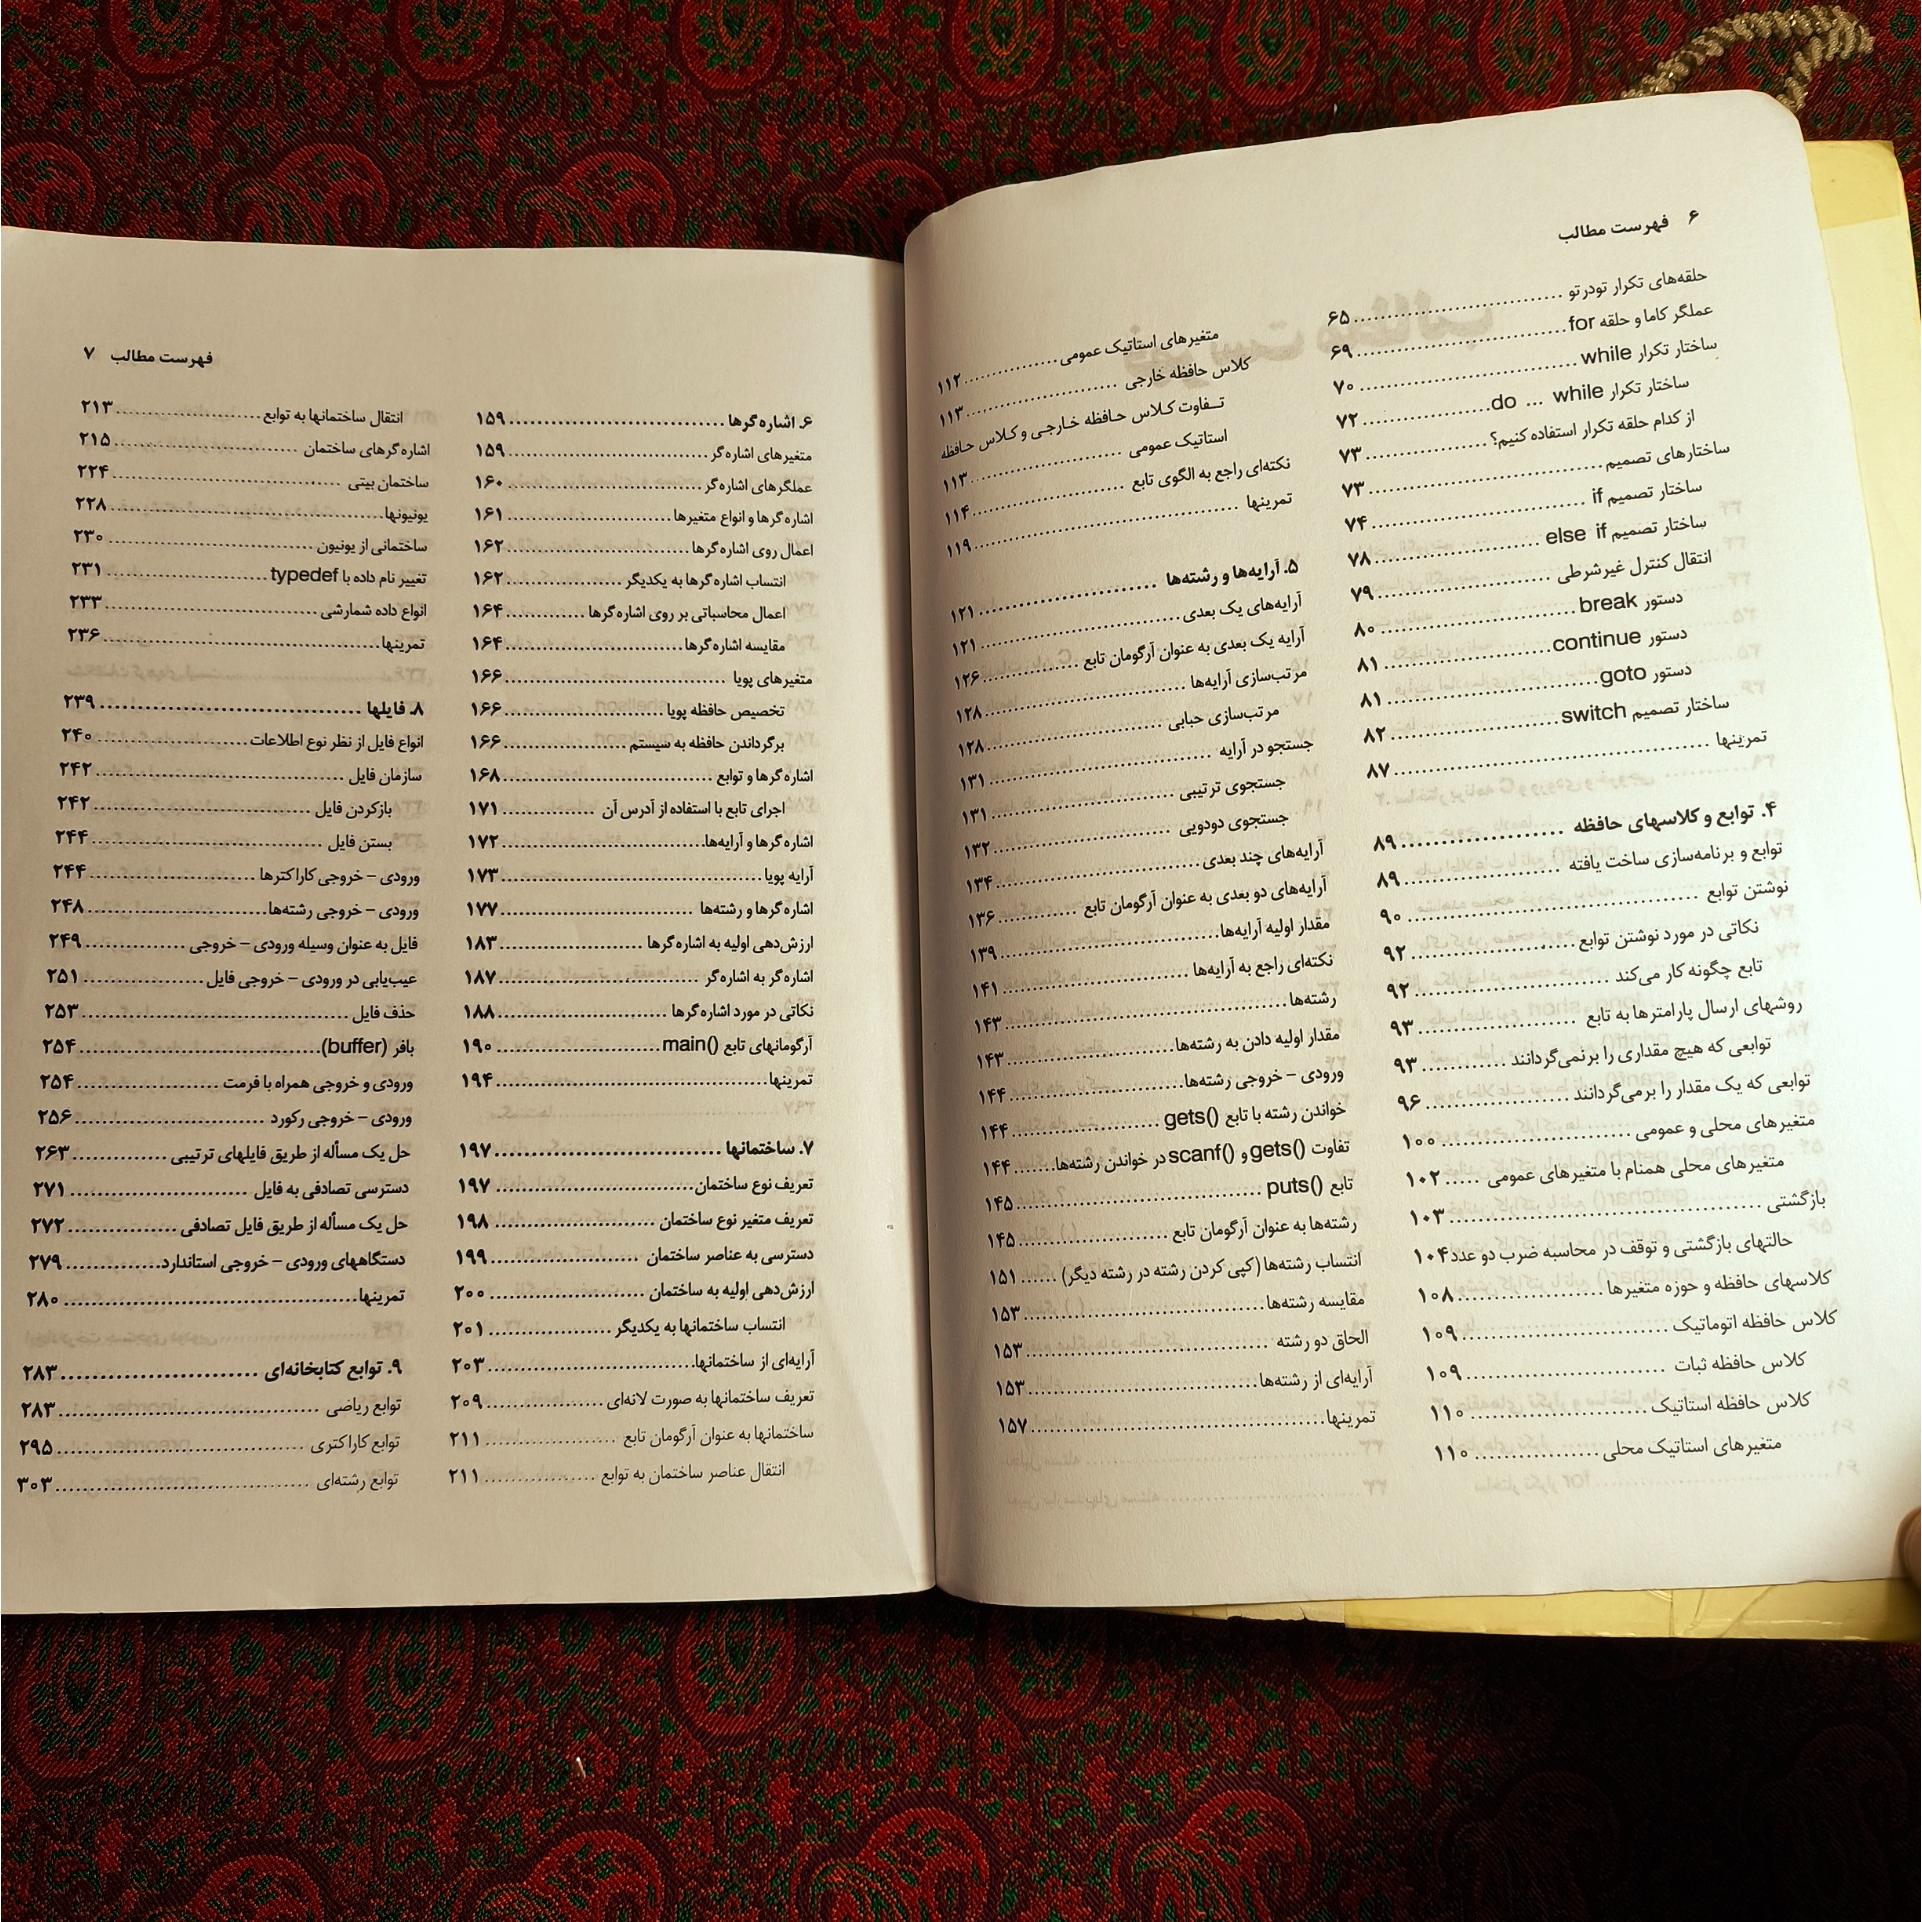 ۶ فهرست مطالب
حلقه‌های تکرار تودرتو ............ ۶۵
عملگر کاما و حلقه for ............ ۶۹
ساختار تکرار while ............ ۷۰
ساختار تکرار do ... while ............ ۷۲
از کدام حلقه تکرار استفاده کنیم؟ ............ ۷۳
ساختارهای تصمیم ............ ۷۳
ساختار تصمیم if ............ ۷۴
ساختار تصمیم else if ............ ۷۸
انتقال کنترل غیرشرطی ............ ۷۹
دستور break ............ ۸۰
دستور continue ............ ۸۱
دستور goto ............ ۸۱
ساختار تصمیم switch ............ ۸۲
تمرینها ............ ۸۷
۴. توابع و کلاسهای حافظه ............ ۸۹
توابع و برنامه‌سازی ساخت یافته ............ ۸۹
نوشتن توابع ............ ۹۰
نکاتی در مورد نوشتن توابع ............ ۹۲
تابع چگونه کار می‌کند ............ ۹۲
روشهای ارسال پارامترها به تابع ............ ۹۳
توابعی که هیچ مقداری را برنمی‌گردانند ............ ۹۳
توابعی که یک مقدار را برمی‌گردانند ............ ۹۶
متغیرهای محلی و عمومی ............ ۱۰۰
متغیرهای محلی همنام با متغیرهای عمومی ..... ۱۰۲
بازگشتی ............ ۱۰۳
حالتهای بازگشتی و توقف در محاسبه ضرب دو عدد ۱۰۴
کلاسهای حافظه و حوزه متغیرها ............ ۱۰۸
کلاس حافظه اتوماتیک ............ ۱۰۹
کلاس حافظه ثبات ............ ۱۰۹
کلاس حافظه استاتیک ............ ۱۱۰
متغیرهای استاتیک محلی ............ ۱۱۰
متغیرهای استاتیک عمومی ............ ۱۱۲
کلاس حافظه خارجی ............ ۱۱۳
تفاوت کلاس حافظه خارجی و کلاس حافظه
استاتیک عمومی ............ ۱۱۳
نکته‌ای راجع به الگوی تابع ............ ۱۱۴
تمرینها ............ ۱۱۹
۵. آرایه‌ها و رشته‌ها ............ ۱۲۱
آرایه‌های یک بعدی ............ ۱۲۱
آرایه یک بعدی به عنوان آرگومان تابع ............ ۱۲۶
مرتب‌سازی آرایه‌ها ............ ۱۲۸
مرتب‌سازی حبابی ............ ۱۲۸
جستجو در آرایه ............ ۱۳۱
جستجوی ترتیبی ............ ۱۳۱
جستجوی دودویی ............ ۱۳۲
آرایه‌های چند بعدی ............ ۱۳۴
آرایه‌های دو بعدی به عنوان آرگومان تابع ............ ۱۳۶
مقدار اولیه آرایه‌ها ............ ۱۳۹
نکته‌ای راجع به آرایه‌ها ............ ۱۴۱
رشته‌ها ............ ۱۴۳
مقدار اولیه دادن به رشته‌ها ............ ۱۴۳
ورودی - خروجی رشته‌ها ............ ۱۴۴
خواندن رشته با تابع gets() ............ ۱۴۴
تفاوت gets() و scanf() در خواندن رشته‌ها ....... ۱۴۴
تابع puts() ............ ۱۴۵
رشته‌ها به عنوان آرگومان تابع ............ ۱۴۵
انتساب رشته‌ها (کپی کردن رشته در رشته دیگر) ...... ۱۵۱
مقایسه رشته‌ها ............ ۱۵۳
الحاق دو رشته ............ ۱۵۳
آرایه‌ای از رشته‌ها ............ ۱۵۳
تمرینها ............ ۱۵۷
فهرست مطالب ۷
۶. اشاره‌گرها ............ ۱۵۹
متغیرهای اشاره‌گر ............ ۱۵۹
عملگرهای اشاره‌گر ............ ۱۶۰
اشاره‌گرها و انواع متغیرها ............ ۱۶۱
اعمال روی اشاره‌گرها ............ ۱۶۲
انتساب اشاره‌گرها به یکدیگر ............ ۱۶۲
اعمال محاسباتی بر روی اشاره‌گرها ............ ۱۶۴
مقایسه اشاره‌گرها ............ ۱۶۴
متغیرهای پویا ............ ۱۶۶
تخصیص حافظه پویا ............ ۱۶۶
برگرداندن حافظه به سیستم ............ ۱۶۶
اشاره‌گرها و توابع ............ ۱۶۸
اجرای تابع با استفاده از آدرس آن ............ ۱۷۱
اشاره‌گرها و آرایه‌ها ............ ۱۷۲
آرایه پویا ............ ۱۷۳
اشاره‌گرها و رشته‌ها ............ ۱۷۷
ارزش‌دهی اولیه به اشاره‌گرها ............ ۱۸۳
اشاره‌گر به اشاره‌گر ............ ۱۸۷
نکاتی در مورد اشاره‌گرها ............ ۱۸۸
آرگومانهای تابع main() ............ ۱۹۰
تمرینها ............ ۱۹۴
۷. ساختمانها ............ ۱۹۷
تعریف نوع ساختمان ............ ۱۹۷
تعریف متغیر نوع ساختمان ............ ۱۹۸
دسترسی به عناصر ساختمان ............ ۱۹۹
ارزش‌دهی اولیه به ساختمان ............ ۲۰۰
انتساب ساختمانها به یکدیگر ............ ۲۰۱
آرایه‌ای از ساختمانها ............ ۲۰۳
تعریف ساختمانها به صورت لانه‌ای ............ ۲۰۹
ساختمانها به عنوان آرگومان تابع ............ ۲۱۱
انتقال عناصر ساختمان به توابع ............ ۲۱۱
انتقال ساختمانها به توابع ............ ۲۱۳
اشاره‌گرهای ساختمان ............ ۲۱۵
ساختمان بیتی ............ ۲۲۴
یونیونها ............ ۲۲۸
ساختمانی از یونیون ............ ۲۳۰
تغییر نام داده با typedef ............ ۲۳۱
انواع داده شمارشی ............ ۲۳۳
تمرینها ............ ۲۳۶
۸. فایلها ............ ۲۳۹
انواع فایل از نظر نوع اطلاعات ............ ۲۴۰
سازمان فایل ............ ۲۴۲
بازکردن فایل ............ ۲۴۲
بستن فایل ............ ۲۴۴
ورودی - خروجی کاراکترها ............ ۲۴۴
ورودی - خروجی رشته‌ها ............ ۲۴۸
فایل به عنوان وسیله ورودی - خروجی ............ ۲۴۹
عیب‌یابی در ورودی - خروجی فایل ............ ۲۵۱
حذف فایل ............ ۲۵۳
بافر (buffer) ............ ۲۵۴
ورودی و خروجی همراه با فرمت ............ ۲۵۴
ورودی - خروجی رکورد ............ ۲۵۶
حل یک مسأله از طریق فایلهای ترتیبی ............ ۲۶۳
دسترسی تصادفی به فایل ............ ۲۷۱
حل یک مسأله از طریق فایل تصادفی ............ ۲۷۲
دستگاههای ورودی - خروجی استاندارد ............ ۲۷۹
تمرینها ............ ۲۸۰
۹. توابع کتابخانه‌ای ............ ۲۸۳
توابع ریاضی ............ ۲۸۳
توابع کاراکتری ............ ۲۹۵
توابع رشته‌ای ............ ۳۰۳